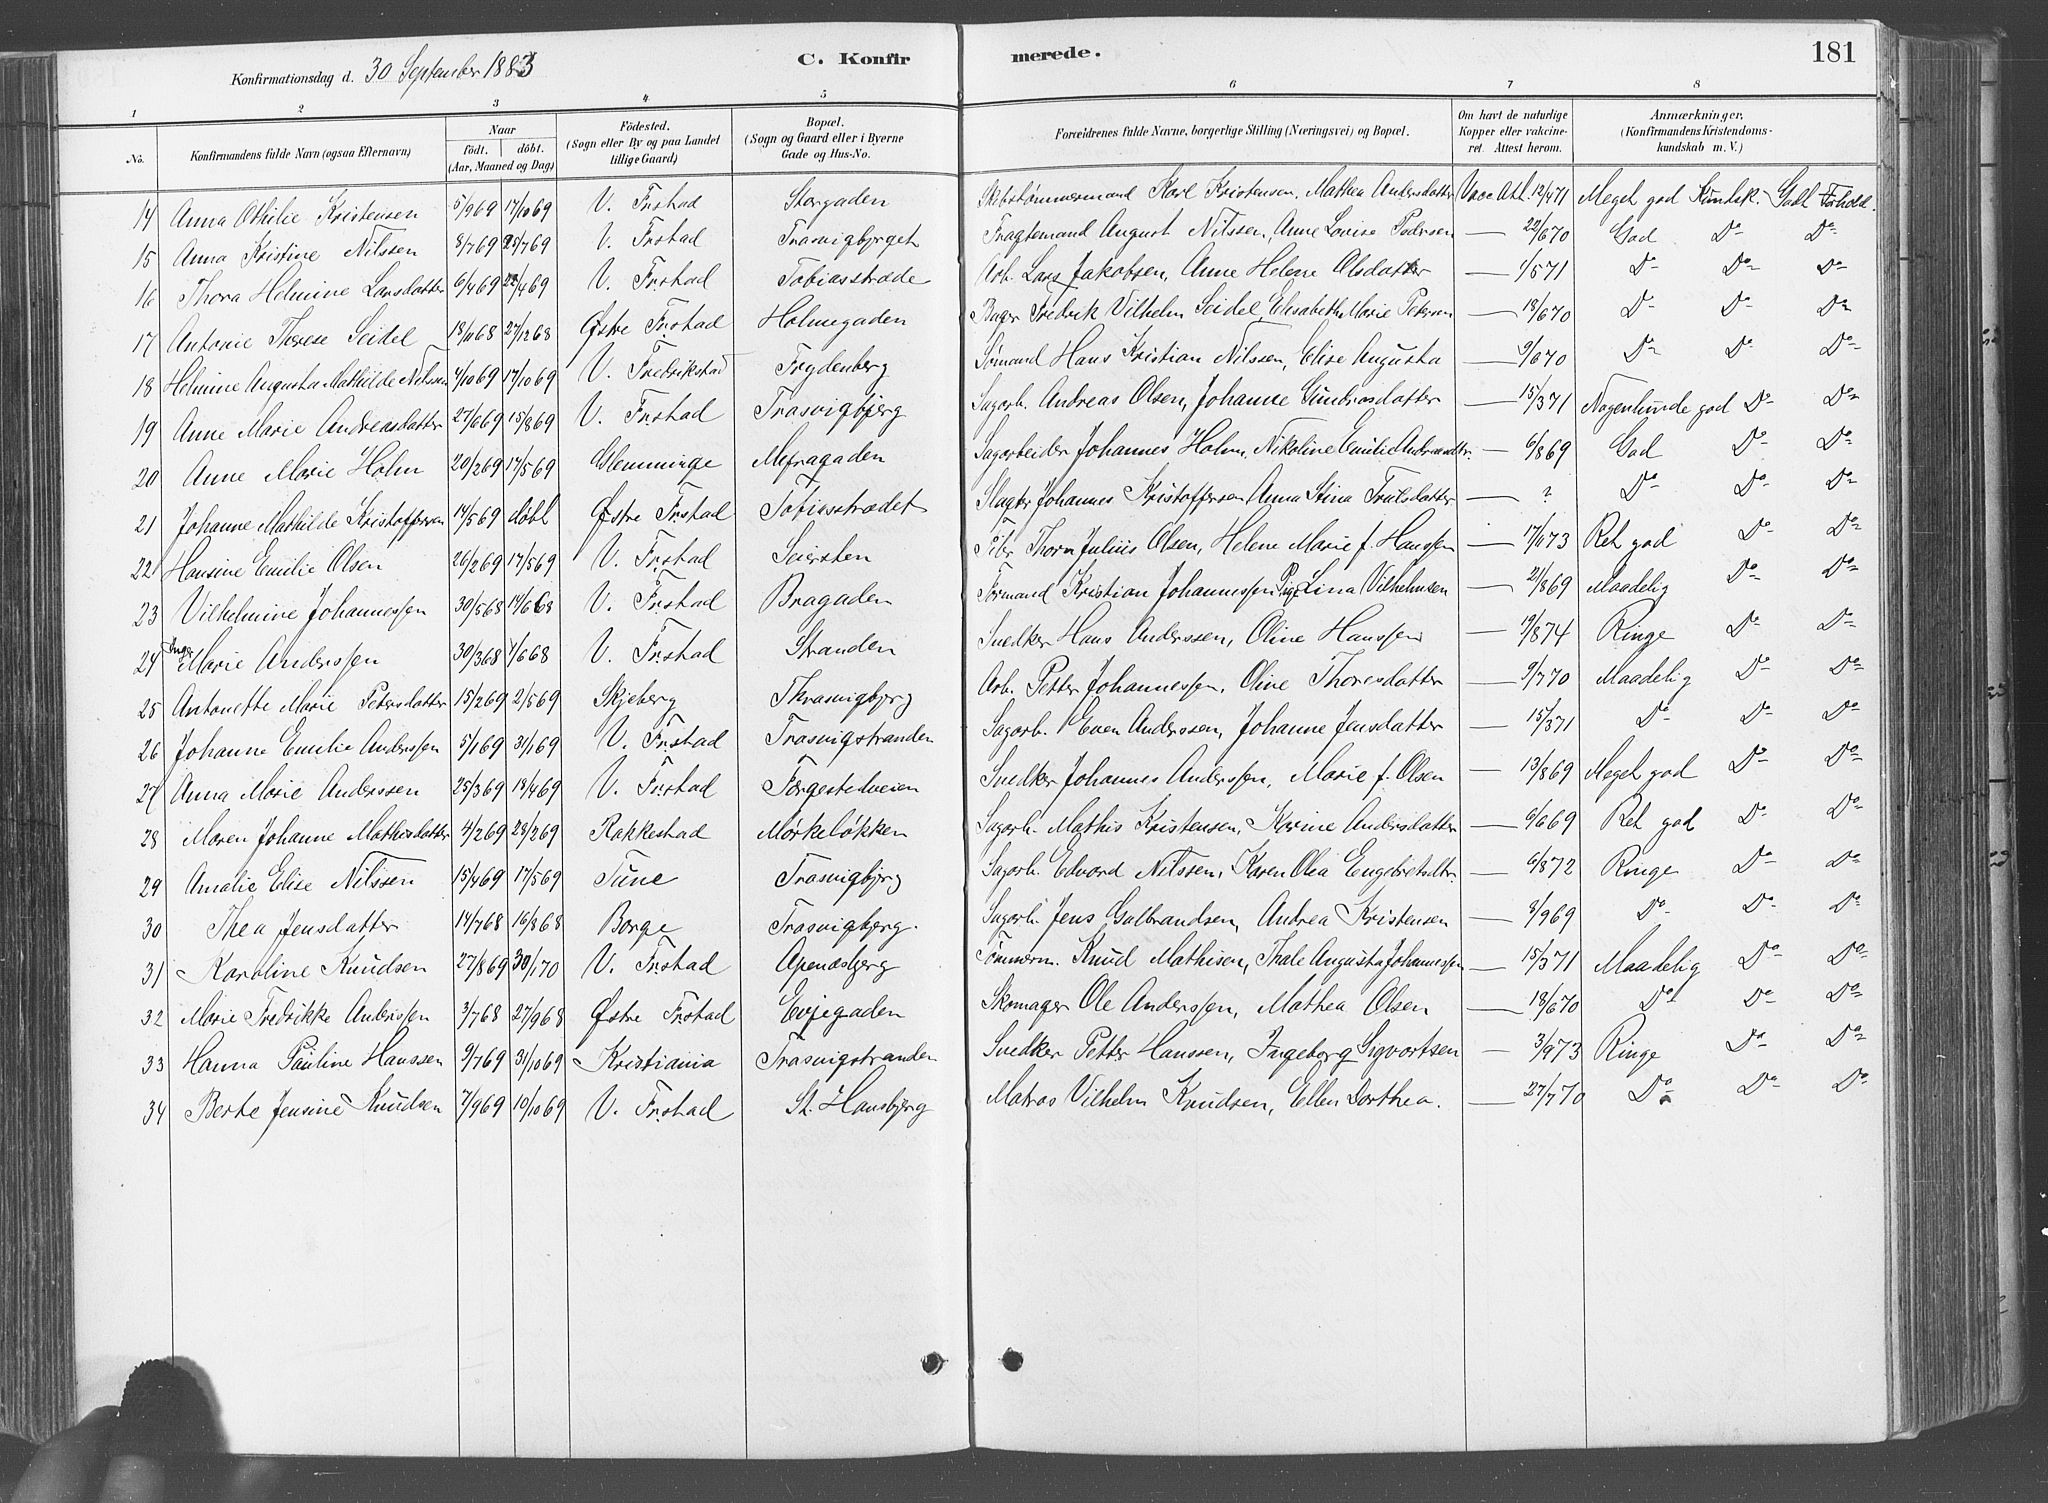 Konfirmationsdag d. 30 September 1883 C. Konfirmerede. 181
1 2 3 4 5 6 7 8
No. Konfirmandens fulde Navn (ogsaa Efternavn) Naar født. døbt. (Aar, Maaned og Dag) Fødested. (Sogn eller By og paa Landet tillige Gaard) Bopæl. (Sogn og Gaard eller i Byerne Gade og Hus-No. Forældrenes fulde Navne, borgerlige Stilling (Næringsvei) og Bopæl. Om havt de naturlige Kopper eller vakcineret. Attest herom. Anmærkninger, (Konfirmandens Kristendomskundskab m. V.)
14 Anna Othilie Kristensen 5/969 17/1069 V. Frstad Storgaden Skibstømmermand Karl Kristensen, Mathea Andersdatter Vacc Att. 12/471 Meget god Kundsk. Godt Forhold.
15 Anna Kristine Nilssen 8/769 25/769 V. Frstad Trasvigbjrget Fragtemand August Nilssen, Anne Lovise Pedersen — 22/670 God Do Do
16 Thora Helmine Larsdatter 6/469 22/469 V. Frstad Tobiasstræde Arb. Lars Jakobsen, Anne Helene Olsdatter — 1/571 Do Do Do
17 Antonie Therese Seidel 18/1168 27/1268 Østre Frstad Holmegaden Bager Fredrik Vilhelm Seidel, Elisabeth Marie Petersen — 18/670 Do Do Do
18 Helmine Augusta Mathilde Nilssen 4/1069 17/1069 V. Fredrikstad Frydenberg Sømand Hans Kristian Nilssen, Elise Augusta — 9/670 Do Do Do
19 Anne Marie Andreasdatter 27/669 15/869 V. Frstad Trasvigbjerg Sagarb. Andreas Olsen, Johanne Gundrosdatter — 15/371 Nogenlunde god Do Do
20 Anne Marie Holm 20/269 17/569 Glemminge Mefragaden Sagarbeider Johannes Holm, Nikoline Emilie Andreasdtr. — 6/869 God Do Do
21 Johanne Mathilde Kristoffersen 14/569 døbt Østre Frstad Tobiasstrædet Slagter Johannes Kristoffersen Anna Stina Trulsdatter — ? Do Do Do
22 Hansine Emilie Olsen 26/269 17/569 V. Frstad Seiersten Thorv Julius Olsen, Helene Marie f. Hanssen — 17/173 Ret god Do Do
23 Vilhelmine Johannessen 30/568 14/668 V. Frstad Bragaden Formand Kristian Johannessen Pige Lina Vilhelmsen — 21/869 Maadelig Do Do
24 Inga Marie Anderssen 30/368 1/668 V. Frstad Stranden Snedker Hans Anderssen, Oline Hanssen — 19/874 Ringe Do Do
25 Antonette Marie Petersdatter 15/269 2/569 Skjeberg Thrasvigbjrg Arb. Petter Johannessen, Oline Thoresdatter — 9/770 Maadelig Do Do
26 Johanne Emilie Anderssen 5/169 31/169 V. Frstad Trasvigstranden Sagarb. Even Anderssen, Johanne Jensdatter — 15/371 Do Do Do
27 Anna Marie Anderssen 25/369 18/469 V. Frstad Færgestedveien Snedker Johannes Anderssen, Marie f. Olsen — 13/869 Meget god Do Do
28 Maren Johanne Mathisdatter 4/269 28/269 Rakkestad Mørkeløkken Sagarb. Mathis Kristensen, Karine Andersdatter — 6/669 Ret god Do Do
29 Amalie Elise Nilssen 15/469 17/569 Tune Trasvigbjrg Sagarb. Edvard Nilssen, Karen Olea Engebretsdtr. — 6/872 Ringe Do Do
30 Thea Jensdatter 14/768 16/868 Borge Trasvigbjerg. Sagarb. Jens Gulbrandsen, Andrea Kristensen — 8/969 Do Do Do
31 Karoline Knudsen 27/869 30/170 V. Frstad Apenæsbjerg Tømmerm. Knud Mathisen, Thale Augusta Johannessen — 15/371 Maadelig Do Do
32 Marie Fredrikke Anderssen 3/768 27/968 Østre Frstad Evjegaden Skomager Ole Anderssen, Mathea Olsen — 18/670 Do Do Do
33 Hanna Pauline Hanssen 9/769 31/1069 Kristiania Trasvigstranden Snedker Petter Hanssen, Ingeborg Sigvartsen — 3/973 Ringe Do Do
34 Berte Jensine Knudsen 7/969 10/1069 V. Frstad St. Hansbjerg Matros Vilhelm Knudsen, Ellen Dorthea. — 27/770 Do Do Do